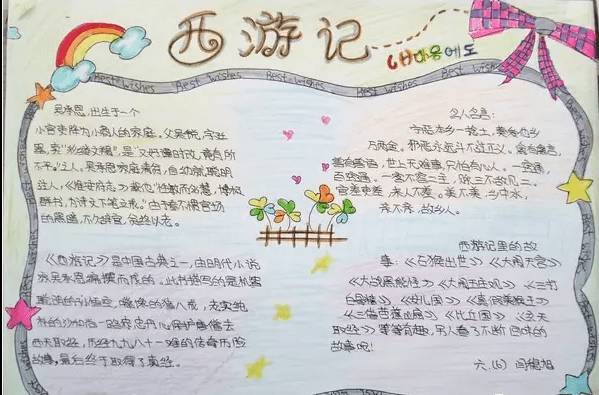 西游记
Best wishes Best wishes Best wishes Best wishes Best wishes
吴承恩,出生于一个
小官吏沦为小商人的家庭,父吴锐,字廷
器,卖"彩缕文縠",是"又好谭时政,竟有所
不平。"之人。吴承恩家庭清贫,自幼敏聪明
过人,《淮安府志》载他"性敏而多慧,博极
群书,为诗文下笔立成。"由于看不惯官场
的黑暗,不久辞官,
《西游记》是中国古典之一,由明代小说
家吴承恩编撰而成的。此书描写的是机智
勇敢的孙悟空,嘴馋的猪八戒,老实纯
朴的沙和尚一路忠心保护唐僧去
西天取经,历经九九八十一难的传奇历险
故事,最后终于取得了真经。
名人名言:
宁恋本乡一捻土,莫爱他乡
万两金。邪恶永远斗不过正义。
善有善道,世上无难事,只怕有心人。一窍通,
百窍通。一客不烦二主,
官差吏差,来人不差。美不美,乡中水,
亲不亲,故乡人。
西游记里的故
事:《石猴出世》《大闹天宫》
《大战黑熊怪》《三打
白骨精》《女儿国》《真假美猴王》
《三借芭蕉扇》《比丘国》
取经》等等有趣,另人看了不断回味的
故事呢!
六.(6)